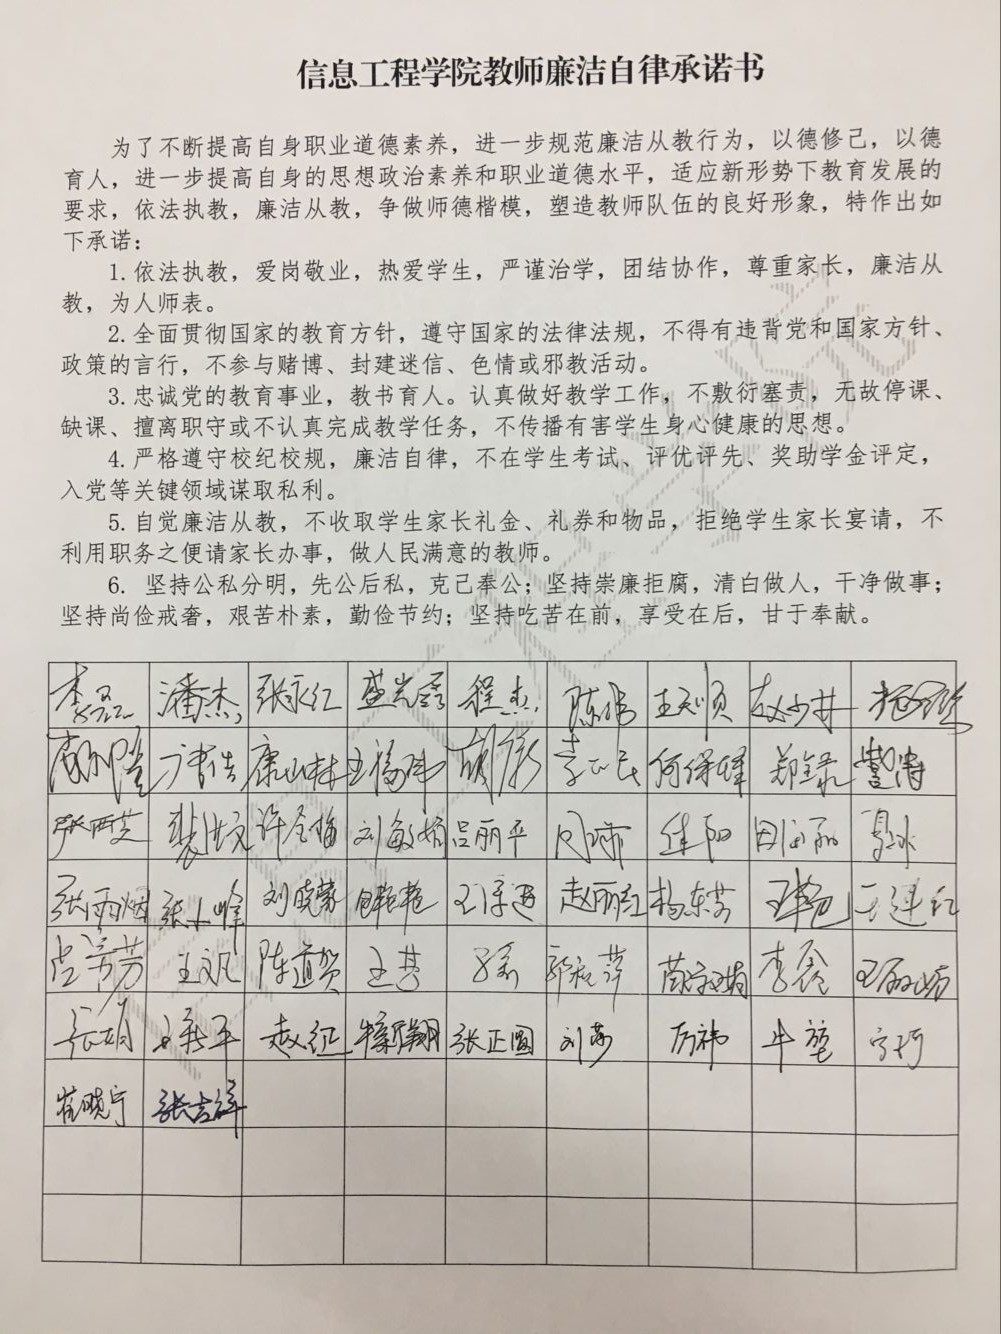 信息工程学院教师廉洁自律承诺书
为了不断提高自身职业道德素养，进一步规范廉洁从教行为，以德修己，以德
育人，进一步提高自身的思想政治素养和职业道德水平，适应新形势下教育发展的
要求，依法执教，廉洁从教，争做师德楷模，塑造教师队伍的良好形象，特作出如
下承诺：
1.依法执教，爱岗敬业，热爱学生，严谨治学，团结协作，尊重家长，廉洁从
教，为人师表。
2.全面贯彻国家的教育方针，遵守国家的法律法规，不得有违背党和国家方针、
政策的言行，不参与赌博、封建迷信、色情或邪教活动。
3.忠诚党的教育事业，教书育人。认真做好教学工作，不敷衍塞责，无故停课、
缺课、擅离职守或不认真完成教学任务，不传播有害学生身心健康的思想。
4.严格遵守校纪校规，廉洁自律，不在学生考试、评优评先、奖助学金评定，
入党等关键领域谋取私利。
5.自觉廉洁从教，不收取学生家长礼金、礼券和物品，拒绝学生家长宴请，不
利用职务之便请家长办事，做人民满意的教师。
6. 坚持公私分明，先公后私，克己奉公；坚持崇廉拒腐，清白做人，干净做事；
坚持尚俭戒奢，艰苦朴素，勤俭节约；坚持吃苦在前，享受在后，甘于奉献。
潘杰 张永红 程杰 陈伟 王天顺 赵少林
康山林 王福伟 李正民 何保锋
张丙芝 许金梅 刘敏娟 吕丽平
张雨烟 张小峰 刘晓蒙 赵丽红 杨东芳 王建红
王文凡 陈道贺 李鑫
张娟 赵征 牛新翔 张正圆 刘莎 厉祎 牛莹
崔晓宁 张吉祥